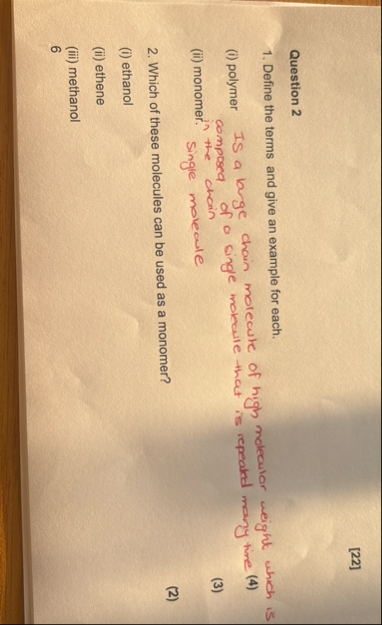 [22]
Question 2
1. Define the terms and give an example for each.
(i) polymer Is a large chain molecule of high molecular weight which is
composed of a single molecule that is repeated many time (4)
in the chain
(ii) monomer. Single molecule (3)
2. Which of these molecules can be used as a monomer? (2)
(i) ethanol
(ii) ethene
(iii) methanol
6